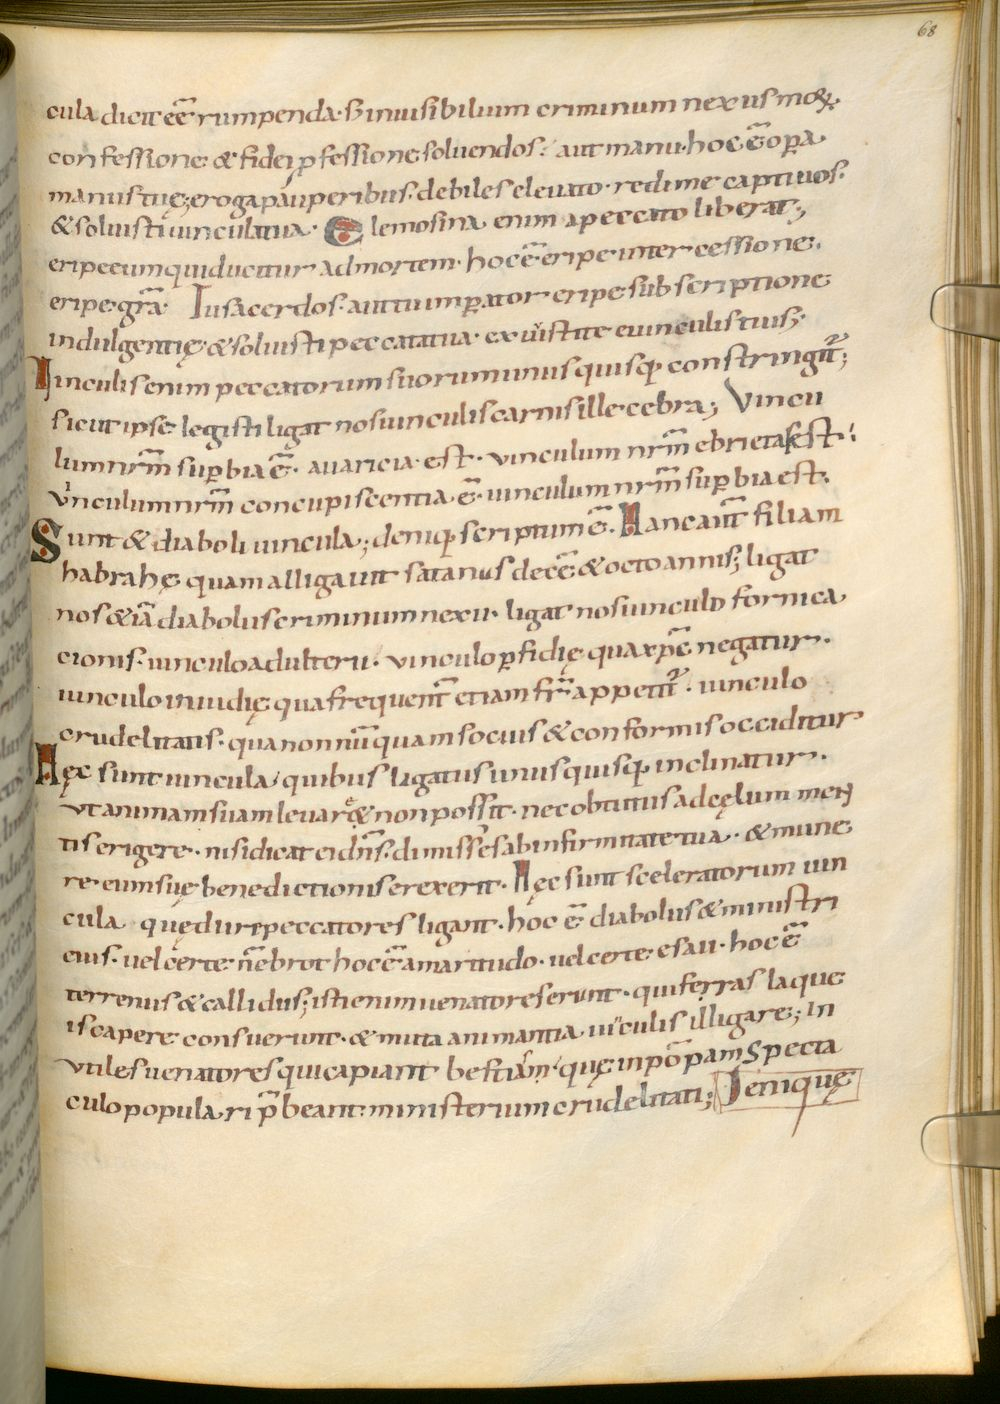 68
cula dicit eē rumpenda· s; inuisibilium criminum nexus mox
confessione & fidei ꝓfessione soluendos· aut manu· hoc ē oꝑa
manus tuę; eroga pauperibus· debiles eleuato· redime captiuos·
& soluisti uincula tua· Elemosina enim a peccato liberat;
eripe eum qui ducitur ad mortem· hoc ē eripe intercessione·
eripe gr̄a· Tu sacerdos· aut tu imꝑator eripe subscriptione
indulgentię· & soluisti peccata tua· exuistite e uinculis tuis;
Uinculis enim peccatorum suorum unusquisq; constringit̄;
sicut ipse legisti ligat nos uinculis carnis illecebra; Vincu
lum nr̄m suꝑbia ē· auaricia est· vinculum nr̄m ebrietas est·
vinculum nr̄m concupiscentia ē· uinculum nr̄m suꝑbia est·
Sunt & diaboli uincula; deniq; scriptum ē· Hanc aut̄ filiam
habrahę quam alligauit satanas decē & octo annis; ligat
nos & iā diabolus criminum nexu· ligat nos uinculo fornica
cionis· uinculo adulterii· vinculo ꝑfidię qua xp̄c negatur·
uinculo inuidię qua frequent̄ etiam fr̄ appetit̄· uinculo
crudelitatis· qua non nūquam socius & conformis occiditur
Hęc sunt uincula quibus ligatus unusquisq; inclinatur·
vt animam suam leuare & non possit· nec obtutus ad cęlum men
tis erigere· nisi dicat ei dn̄s· dimissus es ab infirmitate tua· & mune
re eum suę benedictionis erexerit· Hęc sunt sceleratorum uin
cula quę diu peccatores ligant· hoc ē diabolus & ministri
eius· uel certe nēbrot hoc ē amaritudo· uel certe esau· hoc ē
terrenus & callidus; isti enim uenatores erunt· qui ferras laque
is capere consuerunt· & muta animantia uīculis illigare; In
vtiles uenatores qui capiant bestiam· quę in pōpam specta
culo populari p̄beant ministerium crudelitati; Denique